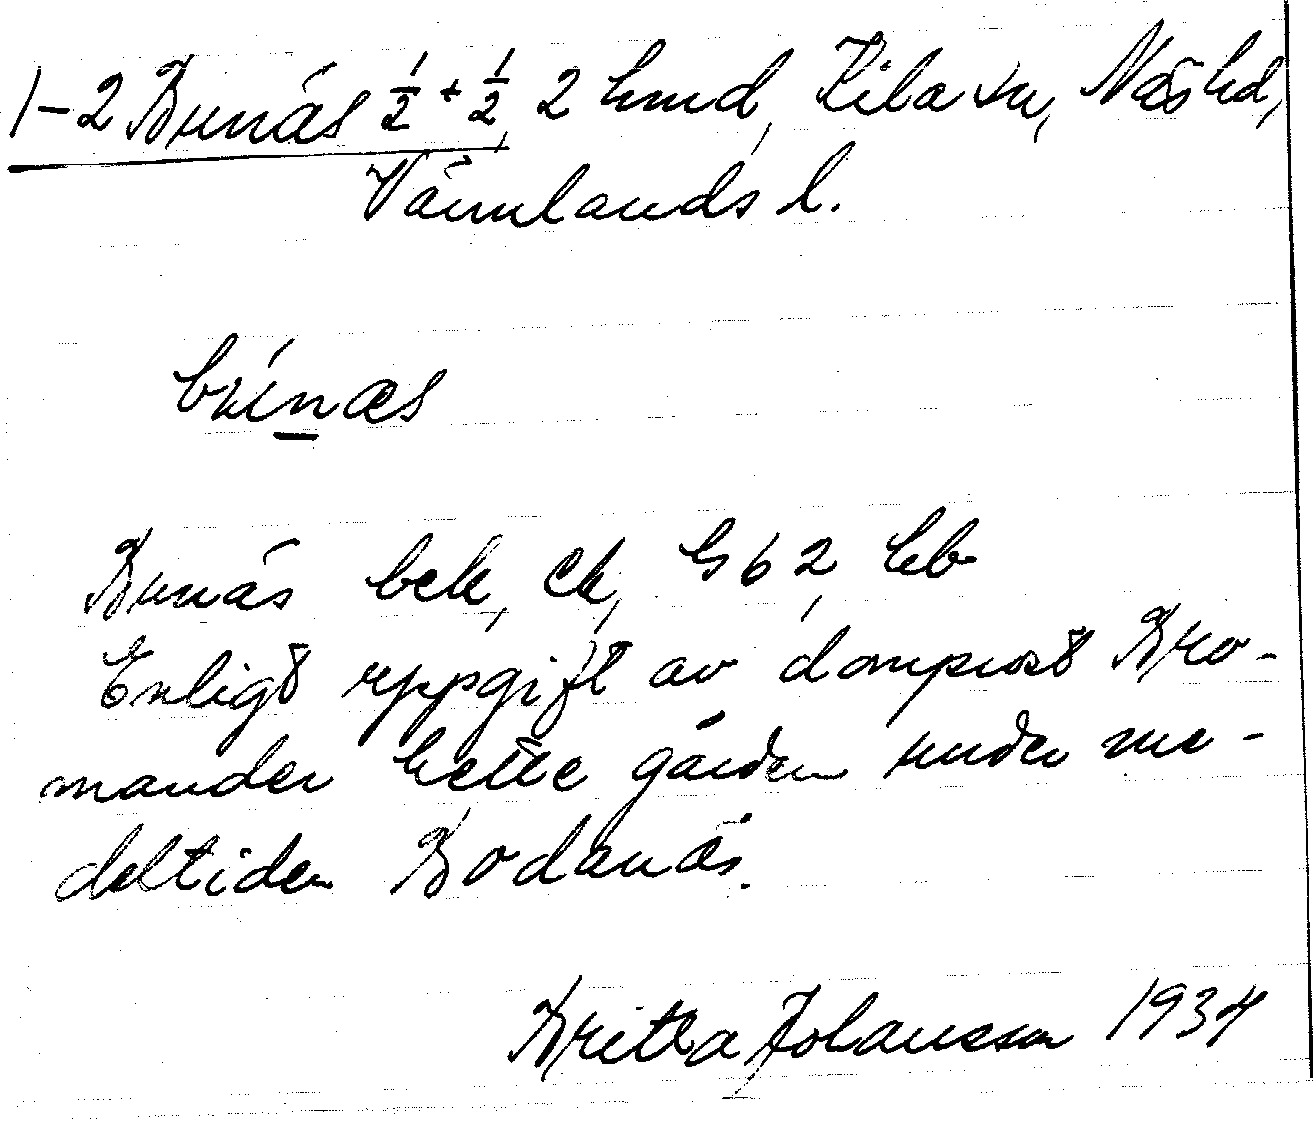 1-2 Brunäs ½ + ½, 2 hmd, Kila sn, Näs hd,
Värmlands l.
brúnæs
Brunäs bek, Ek, G 62, hb
Enligt uppgift av domprost Bro-
mander hette gården under me-
deltiden Bodanäs.
Britta Johansson 1934